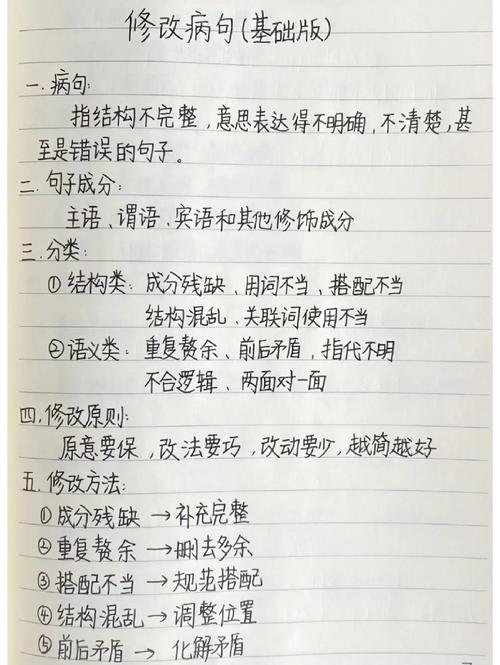 修改病句(基础版)
一.病句:
指结构不完整,意思表达得不明确,不清楚,甚
至是错误的句子。
二.句子成分:
主语、谓语、宾语和其他修饰成分
三.分类:
①结构类:成分残缺、用词不当、搭配不当
结构混乱、关联词使用不当
②语义类:重复赘余、前后矛盾,指代不明
不合逻辑、两面对一面
四.修改原则:
原意要保,改法要巧,改动要少,越简越好
五.修改方法:
①成分残缺→补充完整
②重复赘余→删去多余
③搭配不当→规范搭配
④结构混乱→调整位置
⑤前后矛盾→化解矛盾